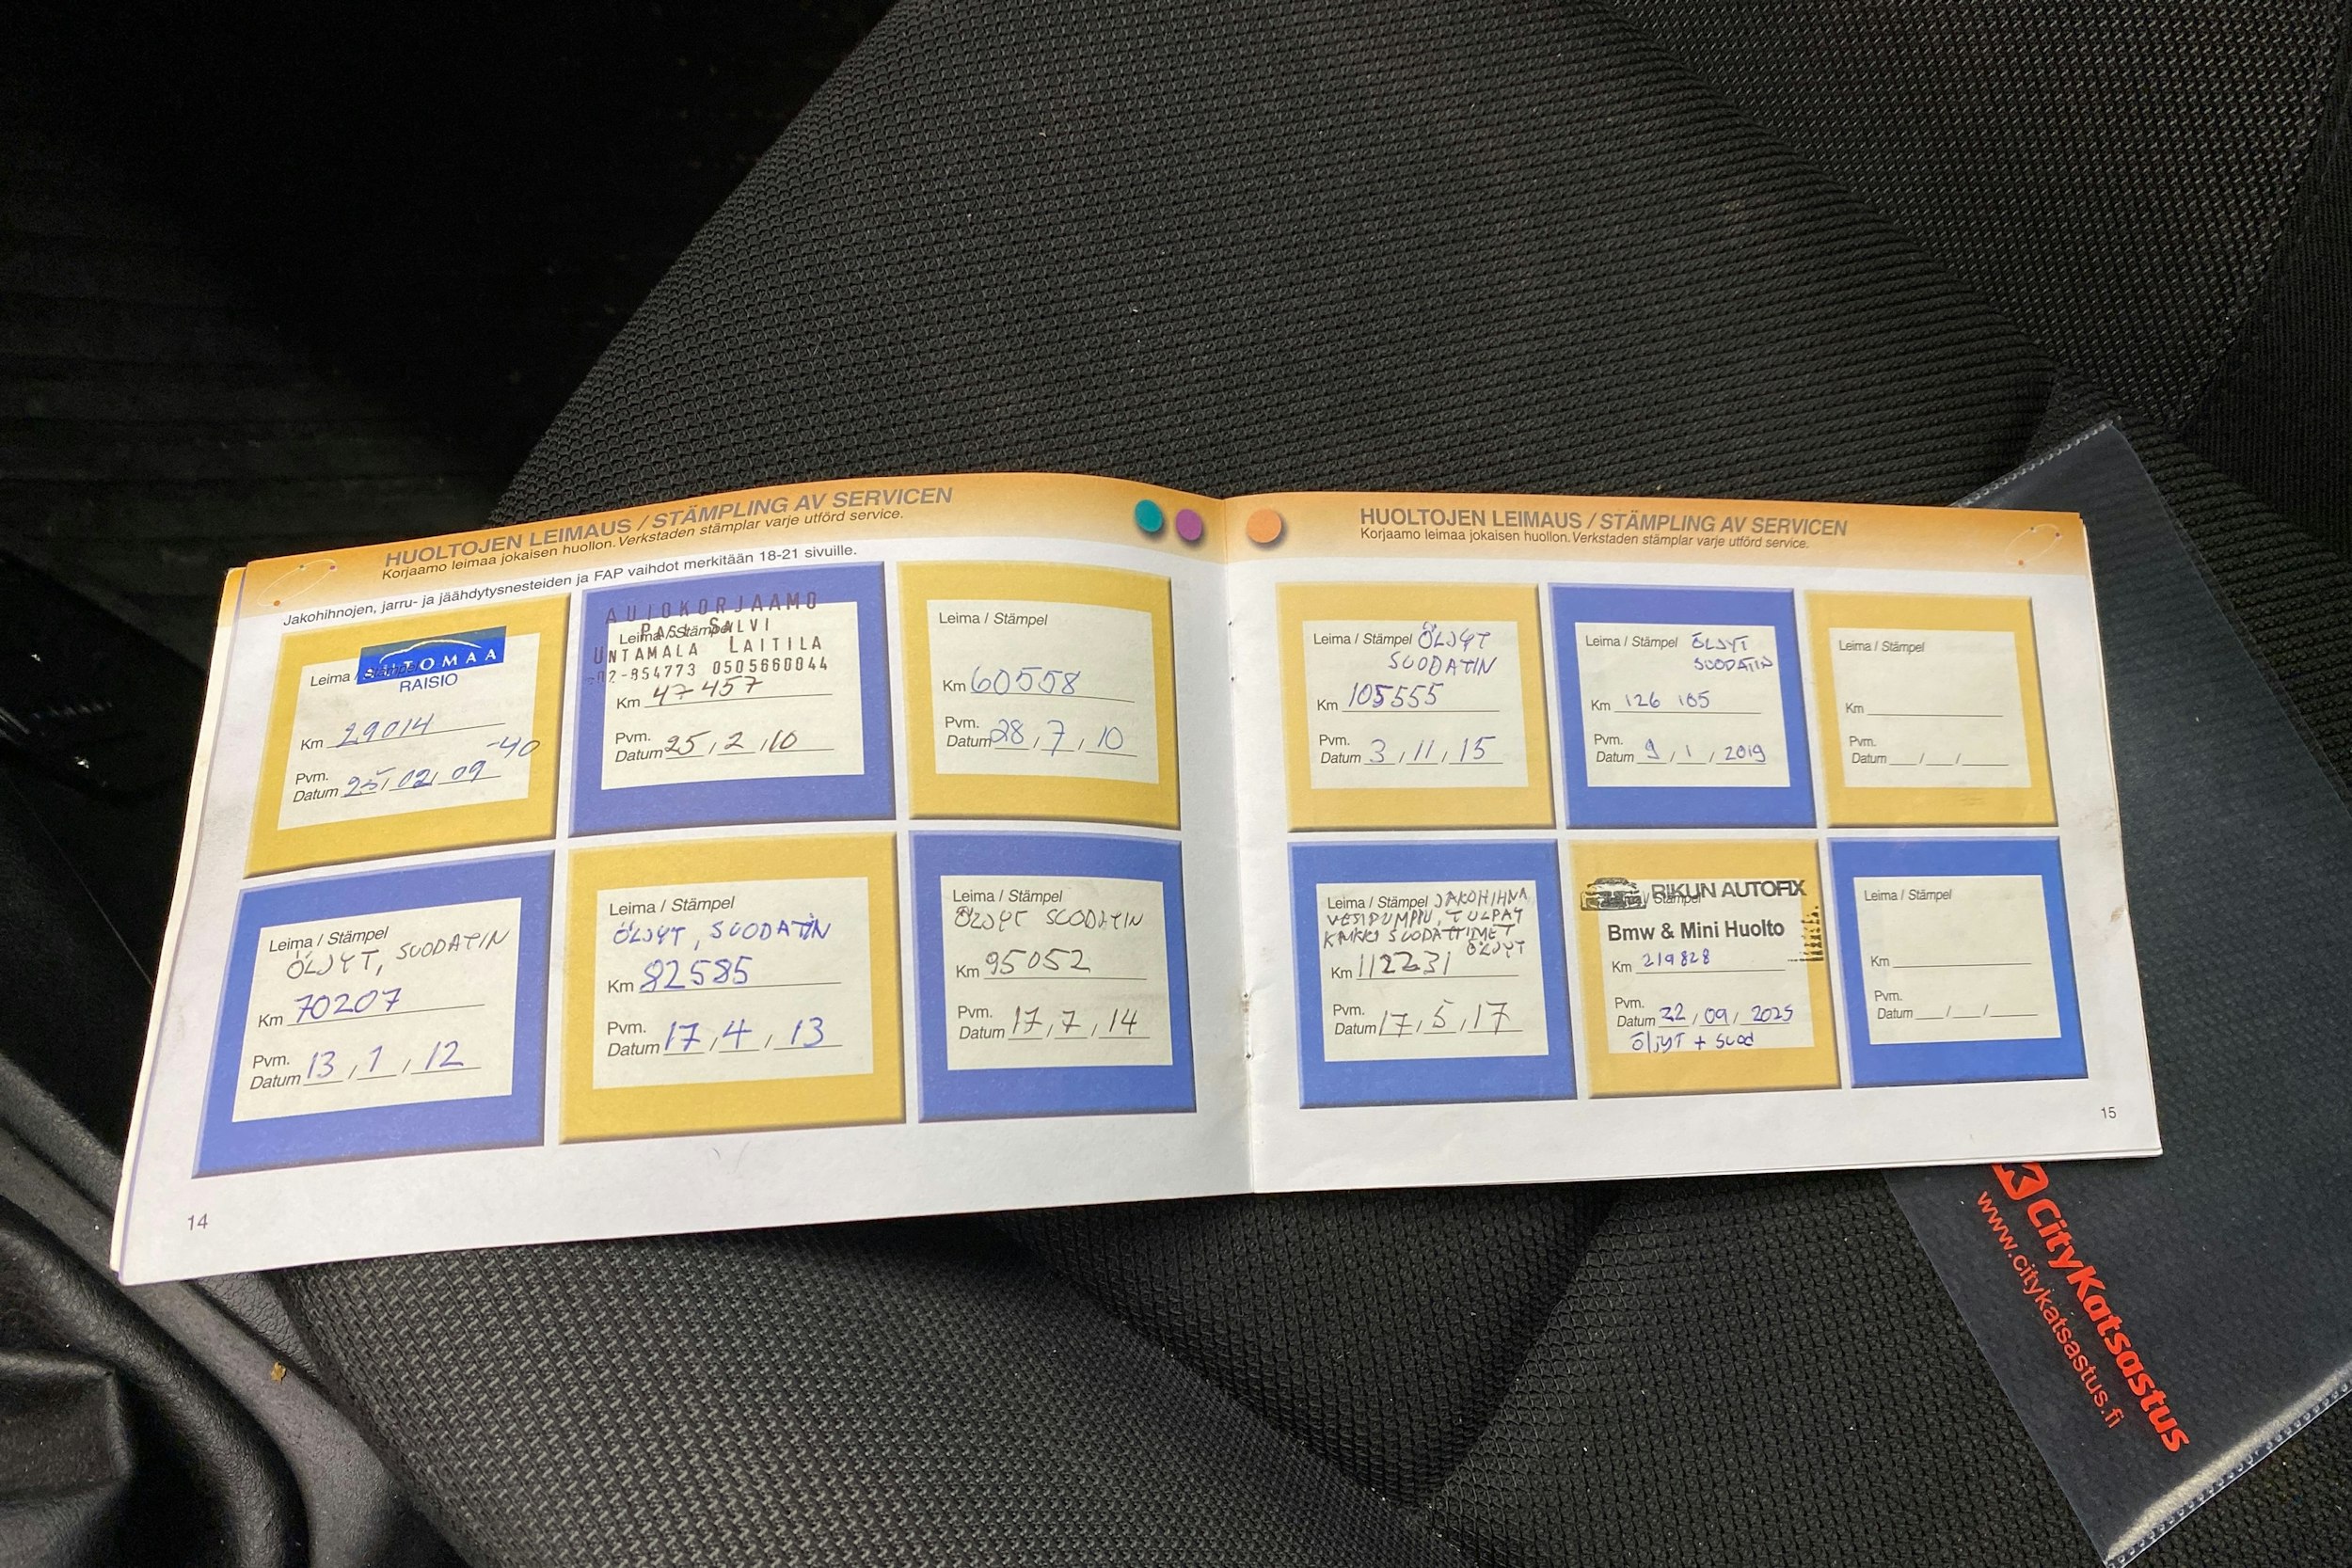 HUOLTOJEN LEIMAUS / STÄMPLING AV SERVICEN
Korjaamo leimaa jokaisen huollon. Verkstaden stämplar varje utförd service.
Jakohihnojen, jarru- ja jäähdytysnesteiden ja FAP vaihdot merkitään 18-21 sivuille.
AUTOMAA
RAISIO
Leima / Stämpel
Km 29014
-40
Pvm.
Datum 25/02/09
AUTOKORJAAMO
PASI SALVI
Leima / Stämpel
UNTAMALA LAITILA
02-854773 0505660844
Km 47457
Pvm.
Datum 25/2/10
Leima / Stämpel
Km 60558
Pvm.
Datum 28/7/10
Leima / Stämpel
ÖLJYT, SUODATIN
Km 70207
Pvm.
Datum 13/1/12
Leima / Stämpel
ÖLJYT, SUODATIN
Km 82585
Pvm.
Datum 17/4/13
Leima / Stämpel
ÖLJYT SUODATIN
Km 95052
Pvm.
Datum 17/7/14
14
HUOLTOJEN LEIMAUS / STÄMPLING AV SERVICEN
Korjaamo leimaa jokaisen huollon. Verkstaden stämplar varje utförd service.
Leima / Stämpel ÖLJYT
SUODATIN
Km 105555
Pvm.
Datum 3/11/15
Leima / Stämpel ÖLJYT
SUODATIN
Km 126 105
Pvm.
Datum 9/1/2019
Leima / Stämpel
Km
Pvm.
Datum / /
Leima / Stämpel JAKOHIHNA
VESIPUMPPU, TULPAT
KAIKKI SUODATTIMET
ÖLJYT
Km 112231
Pvm.
Datum 17/5/17
RIKUN AUTOFIX
Stämpel
Bmw & Mini Huolto
Km 219828
Pvm.
Datum 22/09/2025
ÖljyT + Suod
Leima / Stämpel
Km
Pvm.
Datum / /
15
CityKatsastus
www.citykatsastus.fi